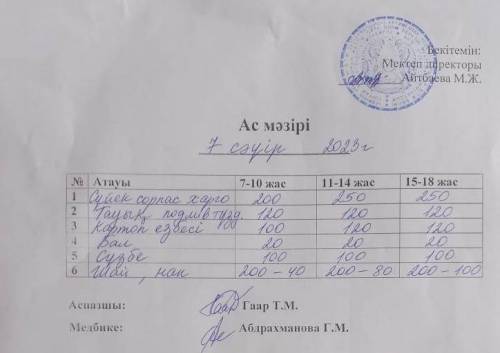 Бекітемін:
Мектеп директоры
Айтбаева М.Ж.
Ас мәзірі
7 сәуір 2023г
№ Атауы 7-10 жас 11-14 жас 15-18 жас
1 Сүйек сорпас харго 200 250 250
2 Тауық подлив тұзд. 120 120 120
3 Картоп езбесі 100 120 120
4 Бал 20 20 20
5 Сүзбе 100 100 100
6 Шай, нан 200 - 40 200 - 80 200 - 100
Аспазшы: Гаар Т.М.
Медбике: Абдрахманова Г.М.